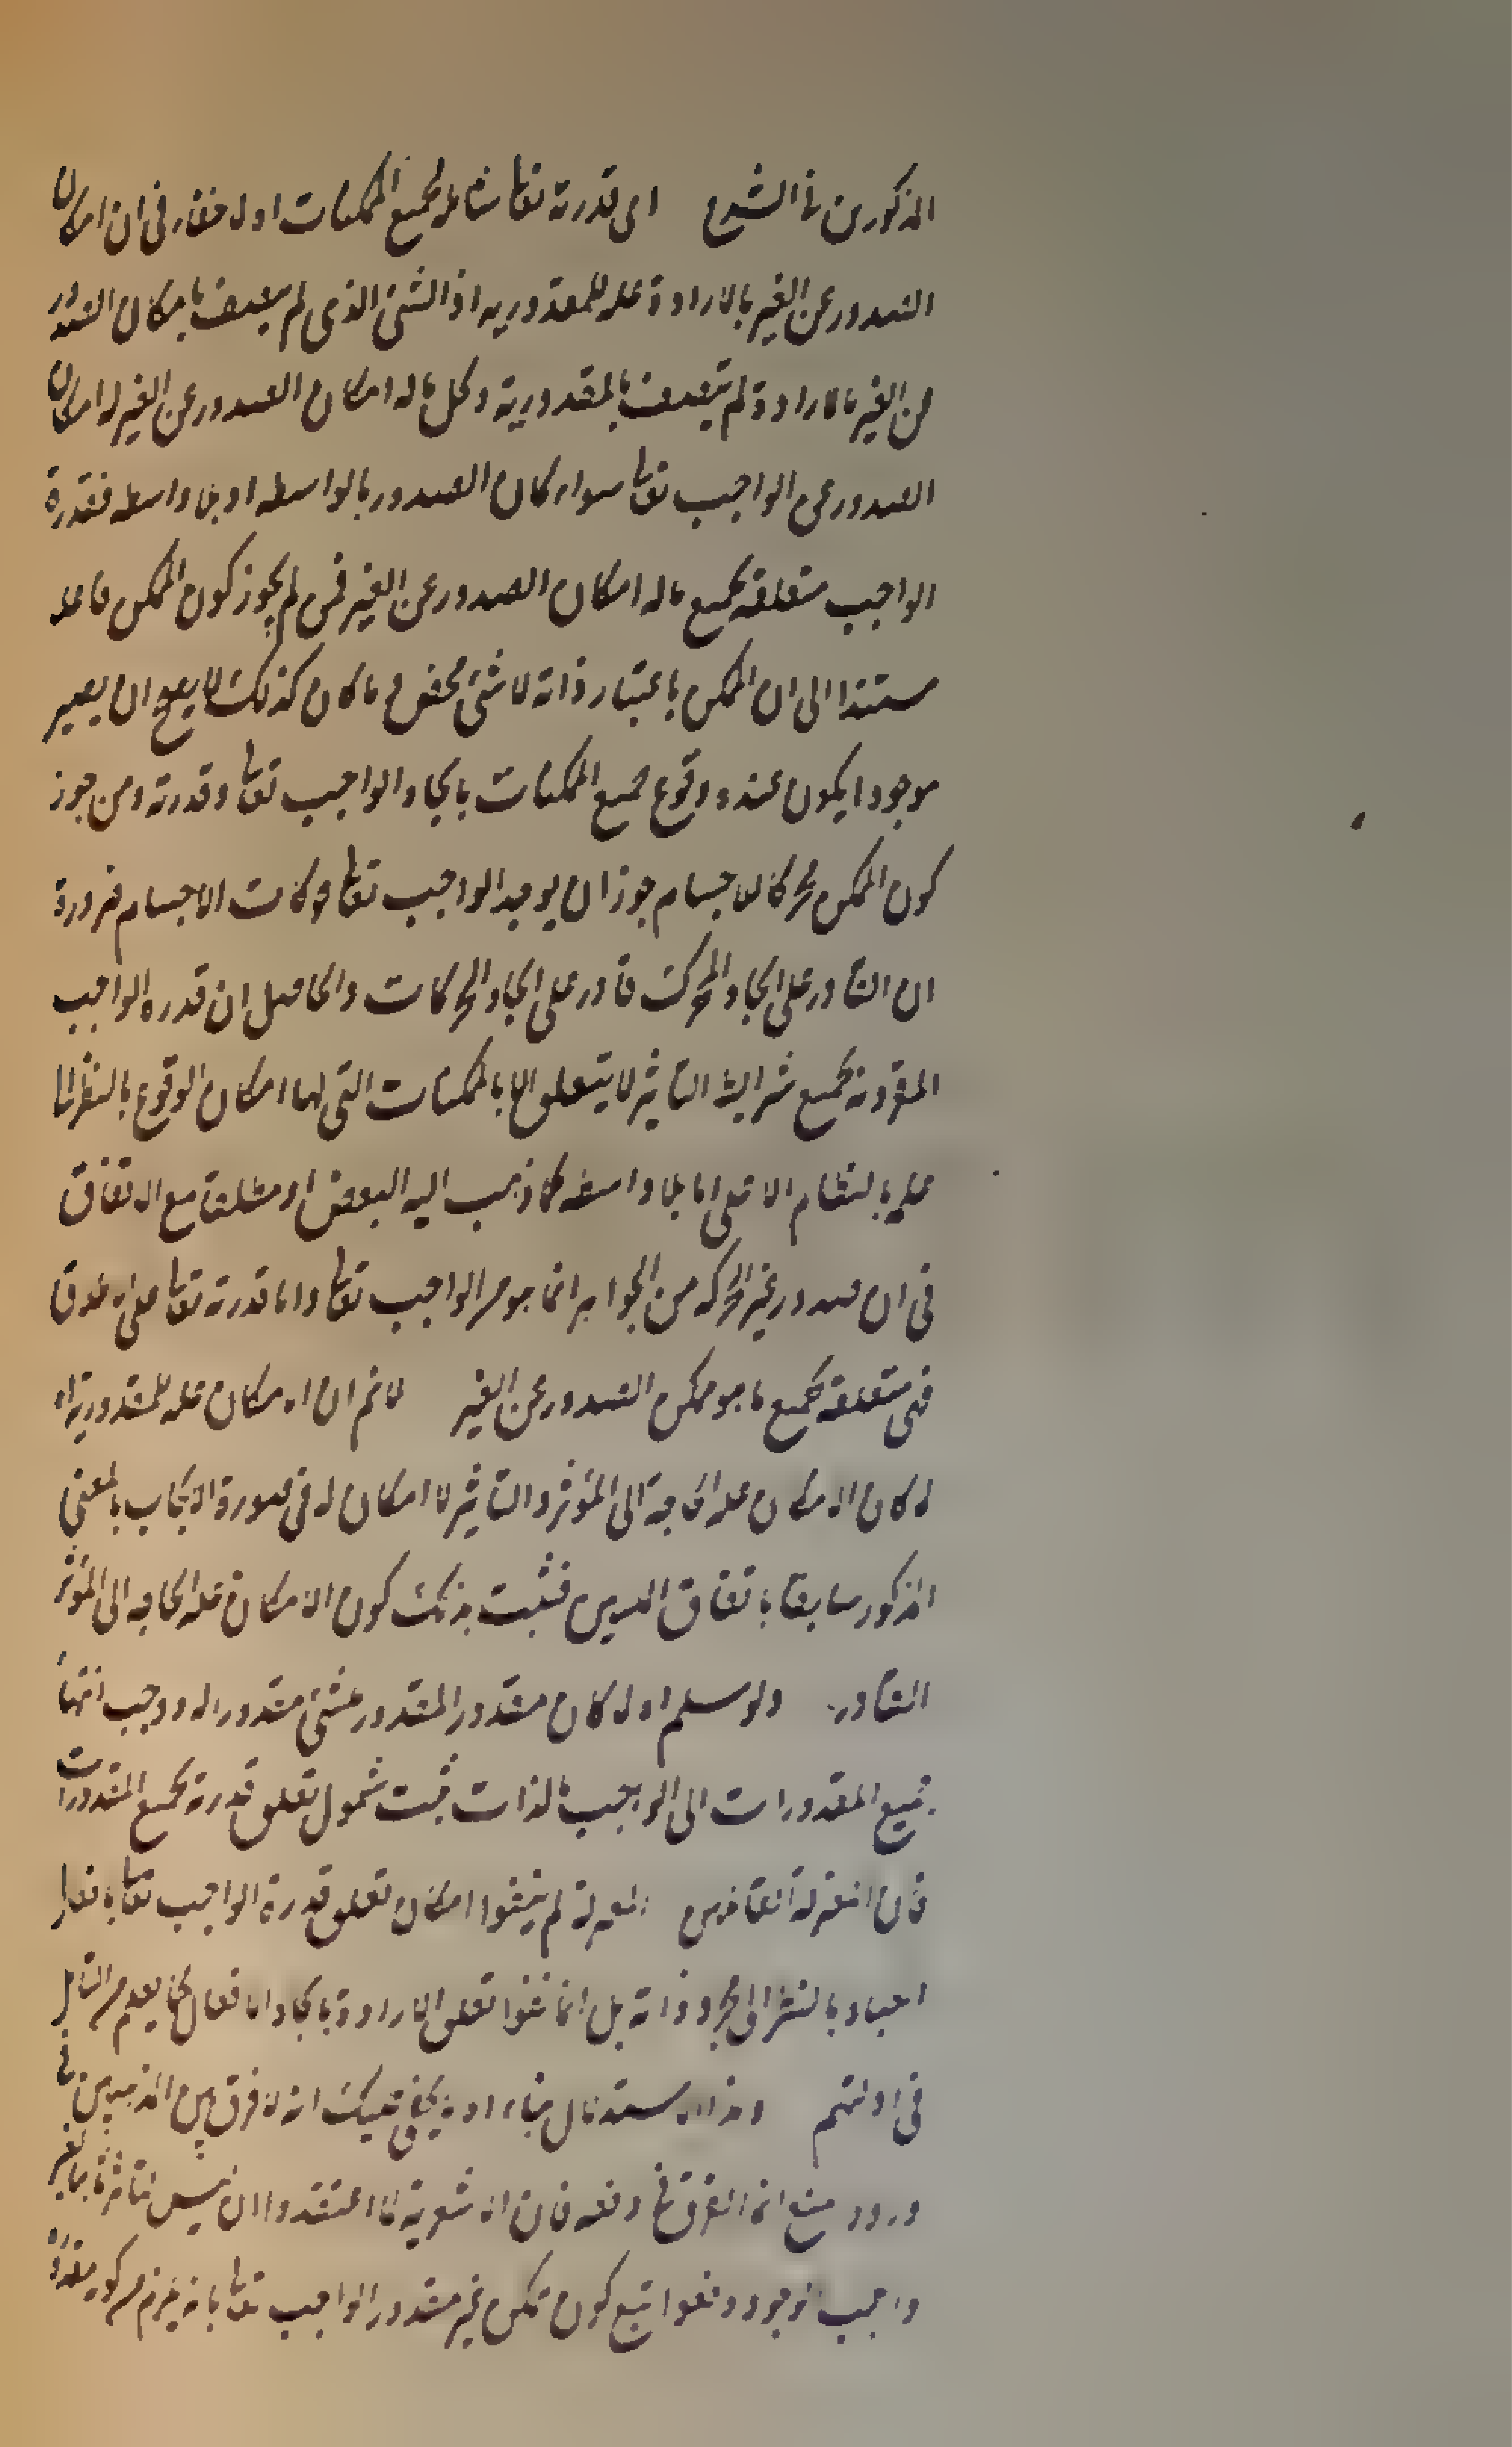 المذكورين في الشرح اى قدرته تعا شاملة لجميع الممكنات اه لا خفاء في ان امكان
الصدور عن الغير بالارادة علة للمقدورية اذ الشئ الذى لم يتصف بامكان الصدور
من الغير بالارادة لم يتصف بالمقدورية وكل ما له امكان الصدور عن الغير له امكان
الصدور عن الواجب تعا سواء كان الصدور بالواسطه او بلا واسطه فقدرة
الواجب متعلقة بجميع ماله امكان الصدور عن الغير فمن لم يجوز كون الممكن فاعلا
مستندا الى ان الممكن باعتبار ذاته لا شئ محض و ما كان كذلك لا يصح ان يصير
موجدا يكون عنده وقوع جميع الممكنات بايجاد الواجب تعا وقدرته ومن جوز
كون الممكن محركا للاجسام جوز ان يوجد الواجب تعا حركات الاجسام ضرورة
ان القادر على ايجاد المحرك قادر على ايجاد الحركات والحاصل ان قدرة الواجب
المقرونة بجميع شرايط التاثير لا يتعلق الا بالممكنات التى لها امكان الوقوع بالنظر الى
علمه بالنظام الاعلى اما بلا واسطه كما ذهب اليه البعض او مطلقا مع الاتفاق
في ان صدور غير الحركه من الجواهر انما هو من الواجب تعا واما قدرته تعا على الاطلاق
فهى متعلقة بجميع ما هو ممكن الصدور عن الغير لا نم ان الامكان علة للمقدورية اه
لما كان الامكان علة الحاجة الى المؤثر والتاثير لا امكان له في صورة الايجاب بالمعنى
المذكور سابقا باتفاق فثبت بذلك كون الامكان علة الحاجه الى المؤثر
القادر ولو سلم اه لما كان مقدور المقدور لشئ مقدورا له ووجب انتهاء
جميع المقدورات الى الواجب بالذات ثبت شمول تعلق قدرته بجميع المقدورات
فان المعتزلة القائلين المعتزلة لم ينفوا امكان تعلق قدرة الواجب تعا بافعال
العباد بالنظر الى مجرد ذاته بل انما نفوا تعلق الارادة بايجاد الافعال كما يعلم من التامل
في ادلتهم وهذا الاستدلال بناء اه لا يخفى عليك انه لا فرق بين المذهبين في
ورود منع انما الفرق في دفعه فان الاشعرية لما اعتقدوا ان ليس
واجب الوجود دفعوا منع كون ممكن غير مقدور الواجب تعا بانه يلزم من كونه